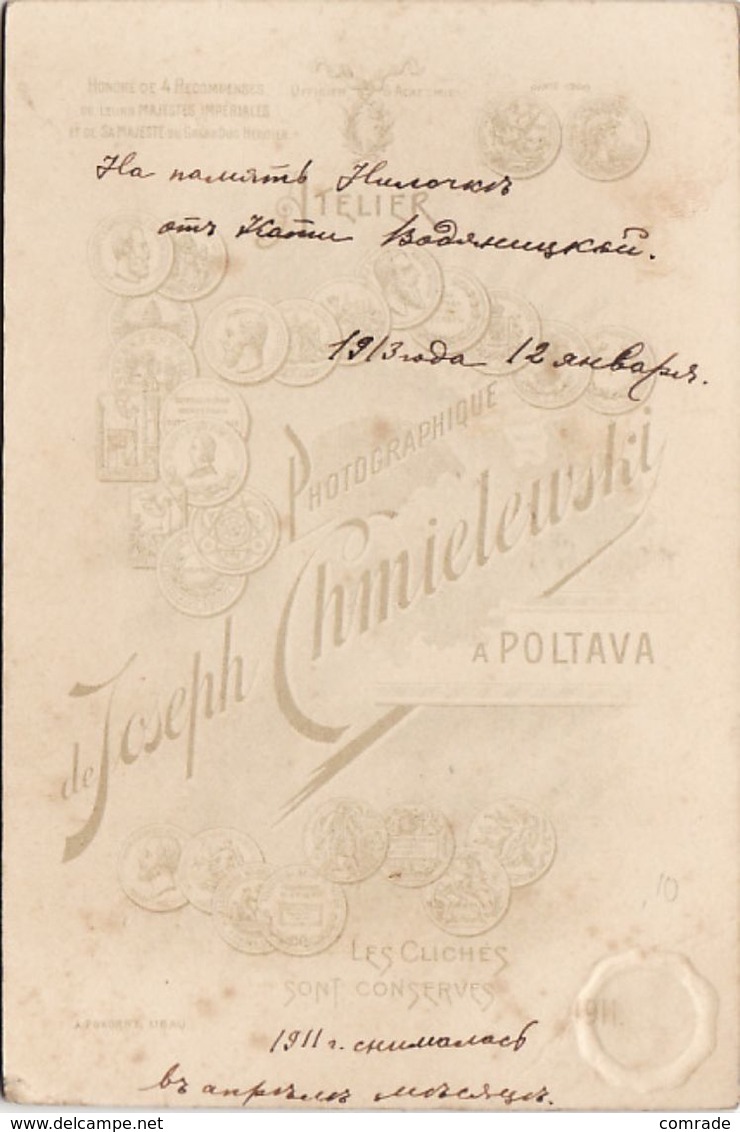 HONORÉ DE 4 RECOMPENSES
DE LEURS MAJESTÉS IMPÉRIALES
ET DE SA MAJESTÉ DU GRAND DUC HERITIER
OFFICIER D'ACADEMIE
PARIS 1900
На память Ниночкѣ
ATELIER
отъ Кати Водяницкой.
1913 года 12 января.
PHOTOGRAPHIQUE
de Joseph Chmielewski
A POLTAVA
10
LES CLICHÉS
SONT CONSERVES
1911.
LIBAU
1911 г. снималась
въ апрѣлѣ мѣсяцѣ.
comrade